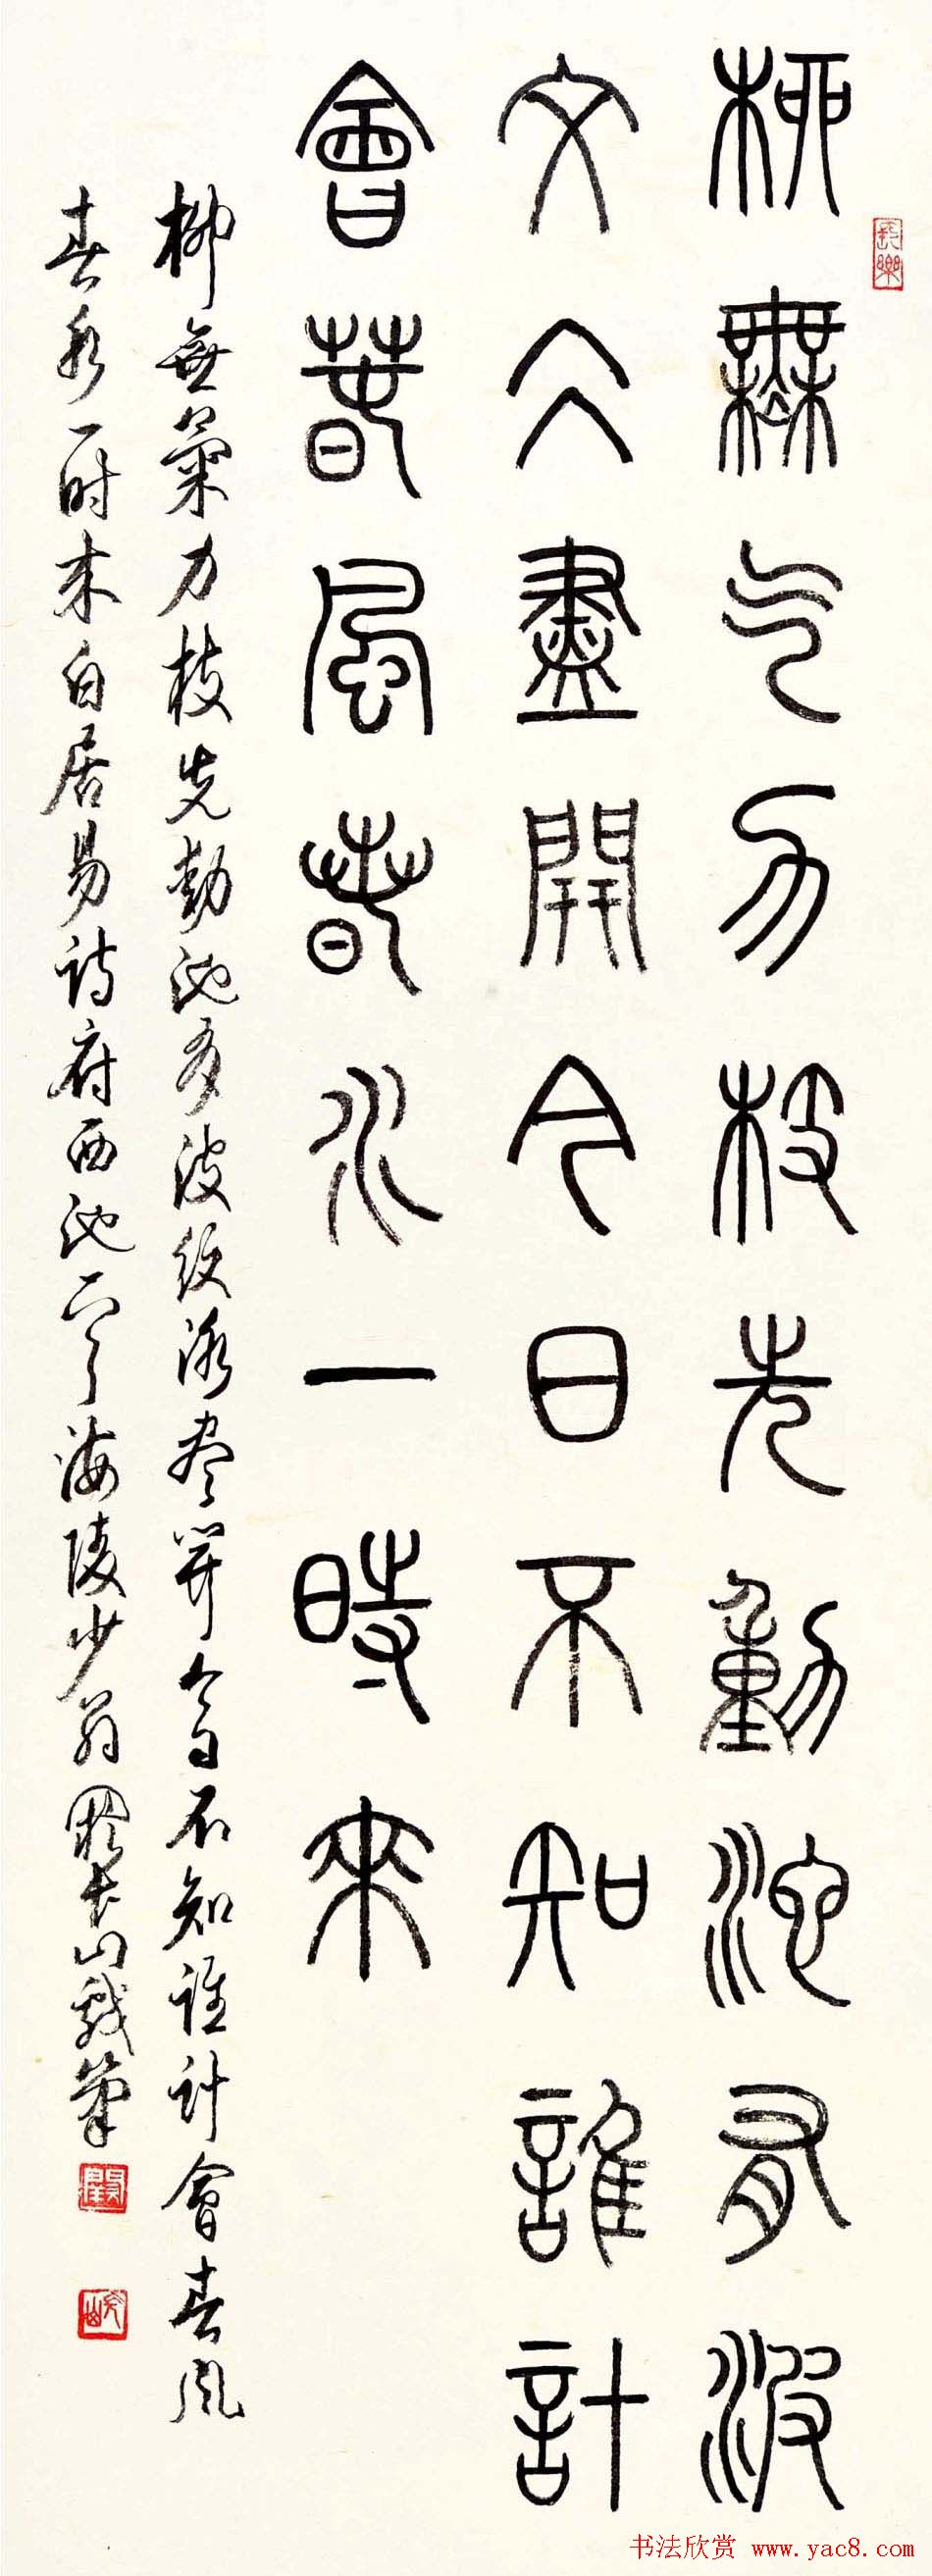 柳無气力枝先動池有波
文仌盡開今日不知誰計
會萅風萅水一時來
柳無氣力枝先動池有波紋冰尽開今日不知誰計會春風
春水一時来白居易詩府西池一首海陵少翁
長樂
书法欣赏 www.yac8.com